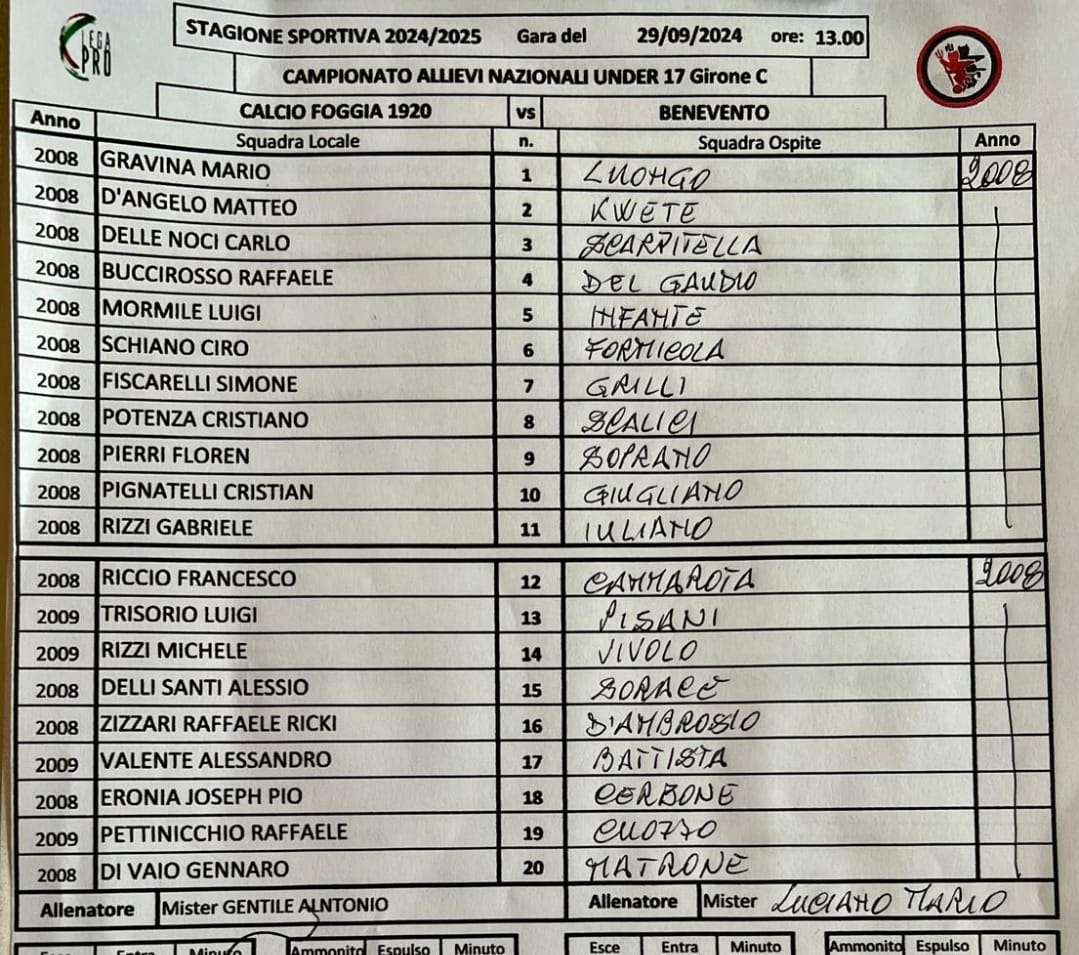 LEGA PRO
STAGIONE SPORTIVA 2024/2025 Gara del 29/09/2024 ore: 13.00
CAMPIONATO ALLIEVI NAZIONALI UNDER 17 Girone C
CALCIO FOGGIA 1920 vs BENEVENTO
Anno Squadra Locale n. Squadra Ospite Anno
2008 GRAVINA MARIO 1 LUONGO 2008
2008 D'ANGELO MATTEO 2 KWETE
2008 DELLE NOCI CARLO 3 SCARPITELLA
2008 BUCCIROSSO RAFFAELE 4 DEL GAUDIO
2008 MORMILE LUIGI 5 INFANTE
2008 SCHIANO CIRO 6 FORMICOLA
2008 FISCARELLI SIMONE 7 GRILLI
2008 POTENZA CRISTIANO 8 SCALICI
2008 PIERRI FLOREN 9 SOPRANO
2008 PIGNATELLI CRISTIAN 10 GIUGLIANO
2008 RIZZI GABRIELE 11 IULIANO
2008 RICCIO FRANCESCO 12 CAMMAROTA 2008
2009 TRISORIO LUIGI 13 PISANI
2009 RIZZI MICHELE 14 VIVOLO
2008 DELLI SANTI ALESSIO 15 SORACE
2008 ZIZZARI RAFFAELE RICKI 16 D'AMBROSIO
2009 VALENTE ALESSANDRO 17 BATTISTA
2008 ERONIA JOSEPH PIO 18 CERBONE
2009 PETTINICCHIO RAFFAELE 19 CUOZZO
2008 DI VAIO GENNARO 20 MATRONE
Allenatore Mister GENTILE ALNTONIO Allenatore Mister LUCIANO MARIO
Esce Entra Minuto Ammonito Espulso Minuto Esce Entra Minuto Ammonito Espulso Minuto